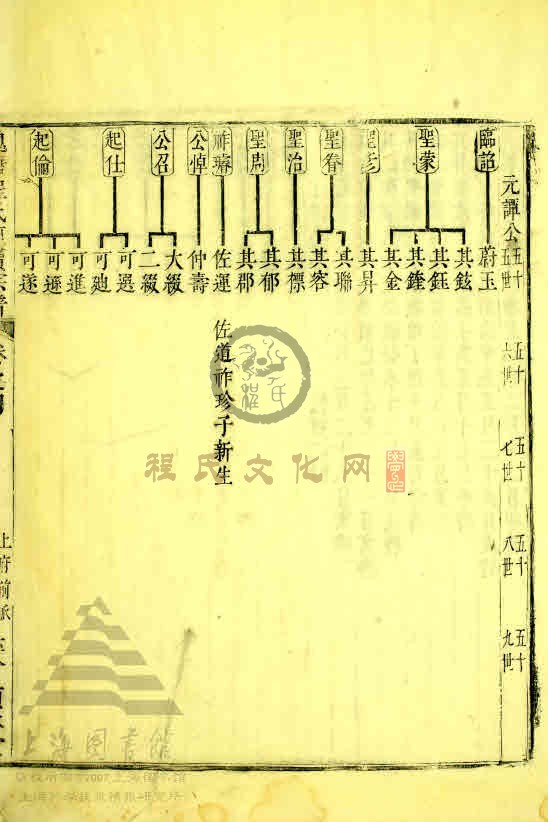 元譚公五十五世
五十六世
五十七世
五十八世
五十九世
臨詔
聖蒙
聖彥
聖眷
聖治
聖周
祚璿
公悼
公召
起仕
起倫
蔚玉
其鉉
其鈺
其銓
其金
其昇
其聯
其容
其標
其郁
其郡
佐運
仲壽
大綴
二綴
可選
可迪
可進
可遜
可遂
佐道祚珍子新生
程氏文化网
上海图书馆